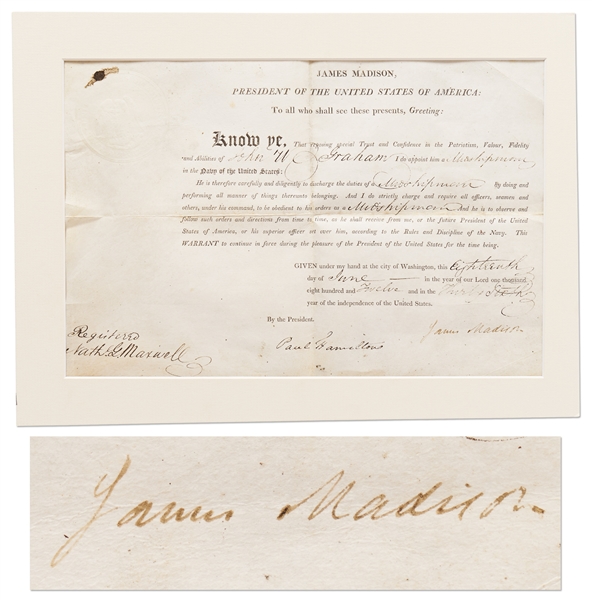 JAMES MADISON,
PRESIDENT OF THE UNITED STATES OF AMERICA:
To all who shall see these presents, Greeting:
Know ye, That reposing special Trust and Confidence in the Patriotism, Valour, Fidelity
and Abilities of John H Graham I do appoint him a Midshipman
in the Navy of the United States:
He is therefore carefully and diligently to discharge the duties of a Midshipman By doing and
performing all manner of things thereunto belonging. And I do strictly charge and require all officers, seamen and
others, under his command, to be obedient to his orders as a Midshipman And he is to observe and
follow such orders and directions from time to time, as he shall receive from me, or the future President of the United
States of America, or his superior officer set over him, according to the Rules and Discipline of the Navy. This
WARRANT to continue in force during the pleasure of the President of the United States for the time being.
GIVEN under my hand at the city of Washington, this Eighteenth
day of June in the year of our Lord one thousand
eight hundred and Twelve and in the Thirty Sixth
year of the independence of the United States.
By the President.
James Madison
Paul Hamilton
Registered
Nath. G. Maxwell
James Madison